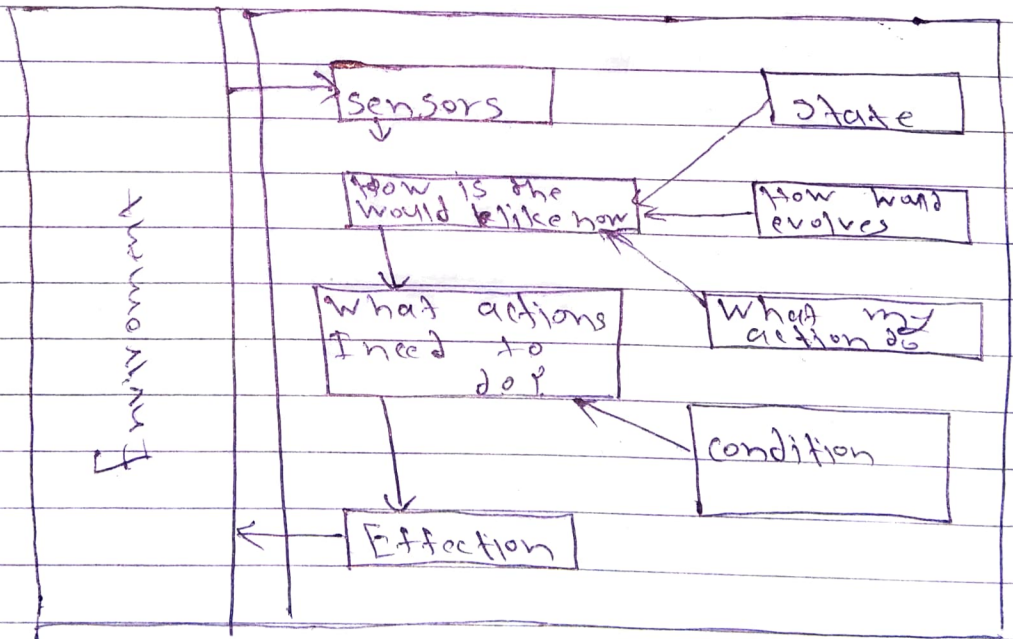 sensors
State
How is the
would like now
How world
evolves
What actions
I need to
do?
What my
action do
condition
Effection
Environment